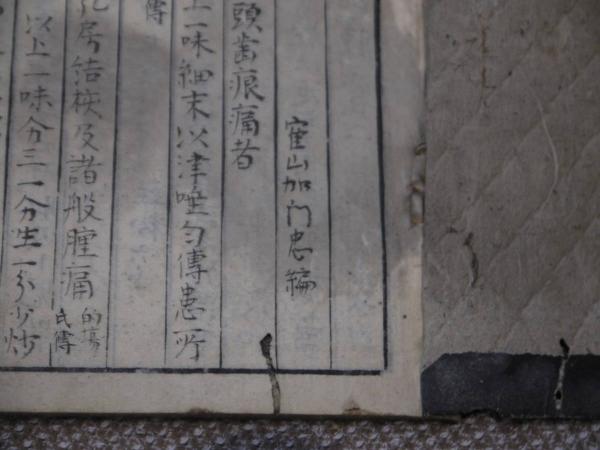 山加门忠編
頭歯痕痛者
上一味細末以津唾匀傅患所
傳
乳房結核及諸般腫痛 的場氏傳
以上一味分三一分生一分少炒